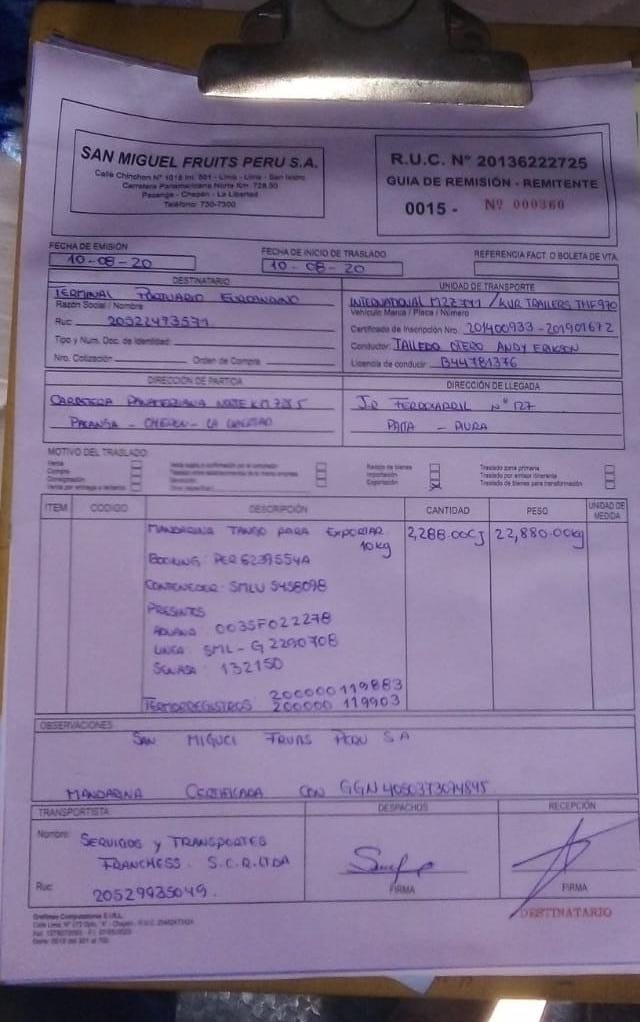 SAN MIGUEL FRUITS PERU S.A.
Calle Chinchon N° 1018 Int. 501 - Lima - Lima - San Isidro
Carretera Panamericana Norte Km 728.50
Pacanga - Chepén - La Libertad
Teléfono: 730-7300
R.U.C. N° 20136222725
GUIA DE REMISIÓN - REMITENTE
0015 - Nº 000360
FECHA DE EMISIÓN
10-08-20
FECHA DE INICIO DE TRASLADO
10-08-20
REFERENCIA FACT. O BOLETA DE VTA.
DESTINATARIO
TERMINAL PORTUARIO EUROANDINO
Razón Social / Nombre
Ruc 20522473571
Tipo y Num. Doc. de Identidad:
Nro. Cotización: Orden de Compra:
UNIDAD DE TRANSPORTE
INTERNATIONAL M2Z711 / KUR TRAILERS THF970
Vehículo Marca / Placa / Número
Certificado de Inscripción Nro. 201400933 - 201901672
Conductor: TALLEDO OTERO ANDY ERIKSON
Licencia de conducir B44781376
DIRECCIÓN DE PARTIDA
CARRETERA PANAMERICANA NORTE KM
PACANGA - CHEPEN - LA LIBERTAD
DIRECCIÓN DE LLEGADA
JR FERROCARRIL Nº 127
PAITA - PIURA
MOTIVO DEL TRASLADO:
Venta
Compra
Consignación
Venta por entrega a terceros
Recojo de bienes
Importación
Exportación
Traslado zona primaria
Traslado por emisor itinerante
Traslado de bienes para transformación
ITEM CODIGO DESCRIPCIÓN CANTIDAD PESO UNIDAD DE MEDIDA
MANDARINA TANGO PARA EXPORTAR 2,288.00CJ 22,880.00kg
10kg
BOOKING: PER6239554A
CONTENEDOR: SMLU 5458098
PRESINTOS
ADUANA: 0035F022278
LINEA: SML-G2290708
SENASA: 132150
200000119883
TERMORREGISTROS: 200000 119903
OBSERVACIONES
SAN MIGUEL FRUITS PERU S.A
MANDARINA CERTIFICADA CON GGN 4050373074845
TRANSPORTISTA
Nombre: SERVICIOS Y TRANSPORTES
FRANCHESS. S.C.R.LTDA
Ruc: 20529935049.
DESPACHOS
FIRMA
RECEPCIÓN
FIRMA
DESTINATARIO